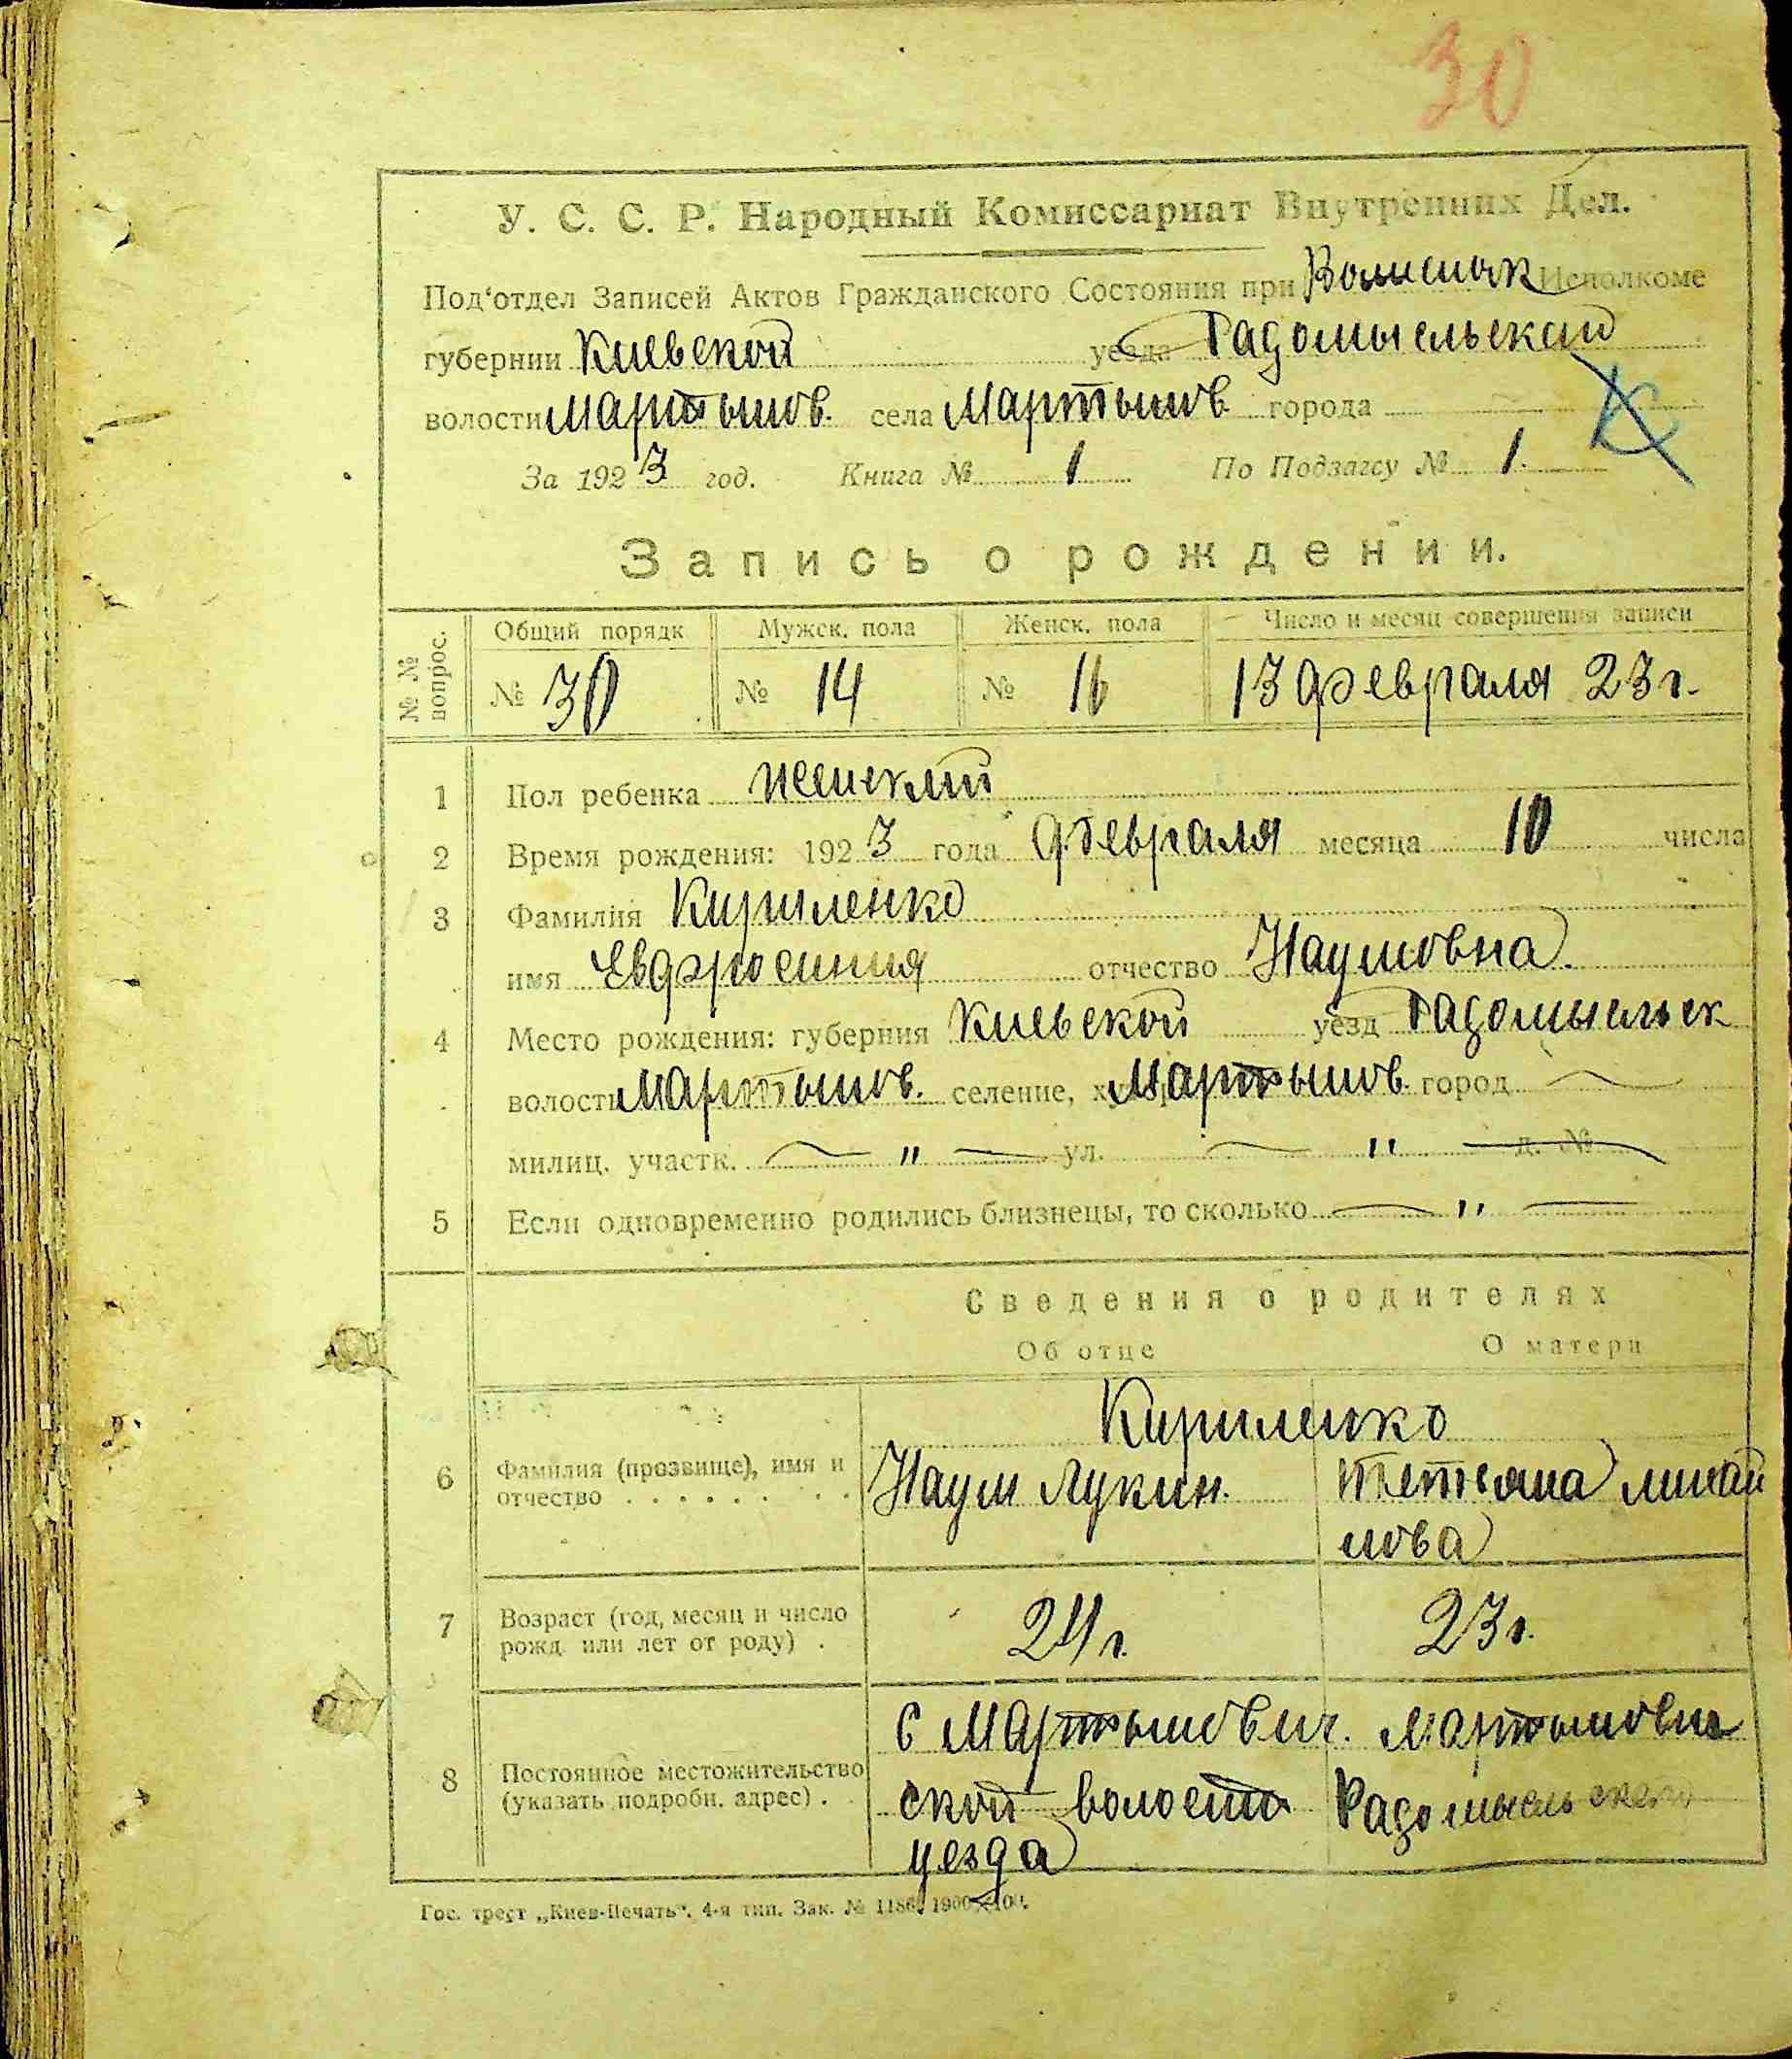 30
У. С. С. Р. Народный Комиссариат Внутренних Дел.
Под'отдел Записей Актов Гражданского Состояния при Исполкоме
губернии Киевской уезда Радомысльский
волости Мартынов. села Мартынов. города
За 1923 год. Книга № 1 По Подзагсу № 1.
Запись о рождении.
№ № вопрос. Общий порядк Мужск. пола Женск. пола Число и месяц совершения записи
№ 30 № 14 № 16 13 февраля 23 г.
1 Пол ребенка женский
2 Время рождения: 1923 года февраля месяца 10 числа
3 Фамилия Кириленко
имя Евфросиния отчество Наумовна.
4 Место рождения: губерния Киевской уезд Радомысльск
волость Мартынов. селение, Мартынов. город
милиц. участк. " ул. " д. №
5 Если одновременно родились близнецы, то сколько "
Сведения о родителях
Об отце О матери
Кириленко
6 Фамилия (прозвище), имя и отчество Наум Лукин. Тетяна Михай
лова
7 Возраст (год, месяц и число рожд. или лет от роду) 24 г. 23 г.
8 Постоянное местожительство (указать подробн. адрес) с Мартынович. Мартынович
ской волости Радомысльского
уезда
Гос. трест „Киев-Печать". 4-я тип. Зак. №